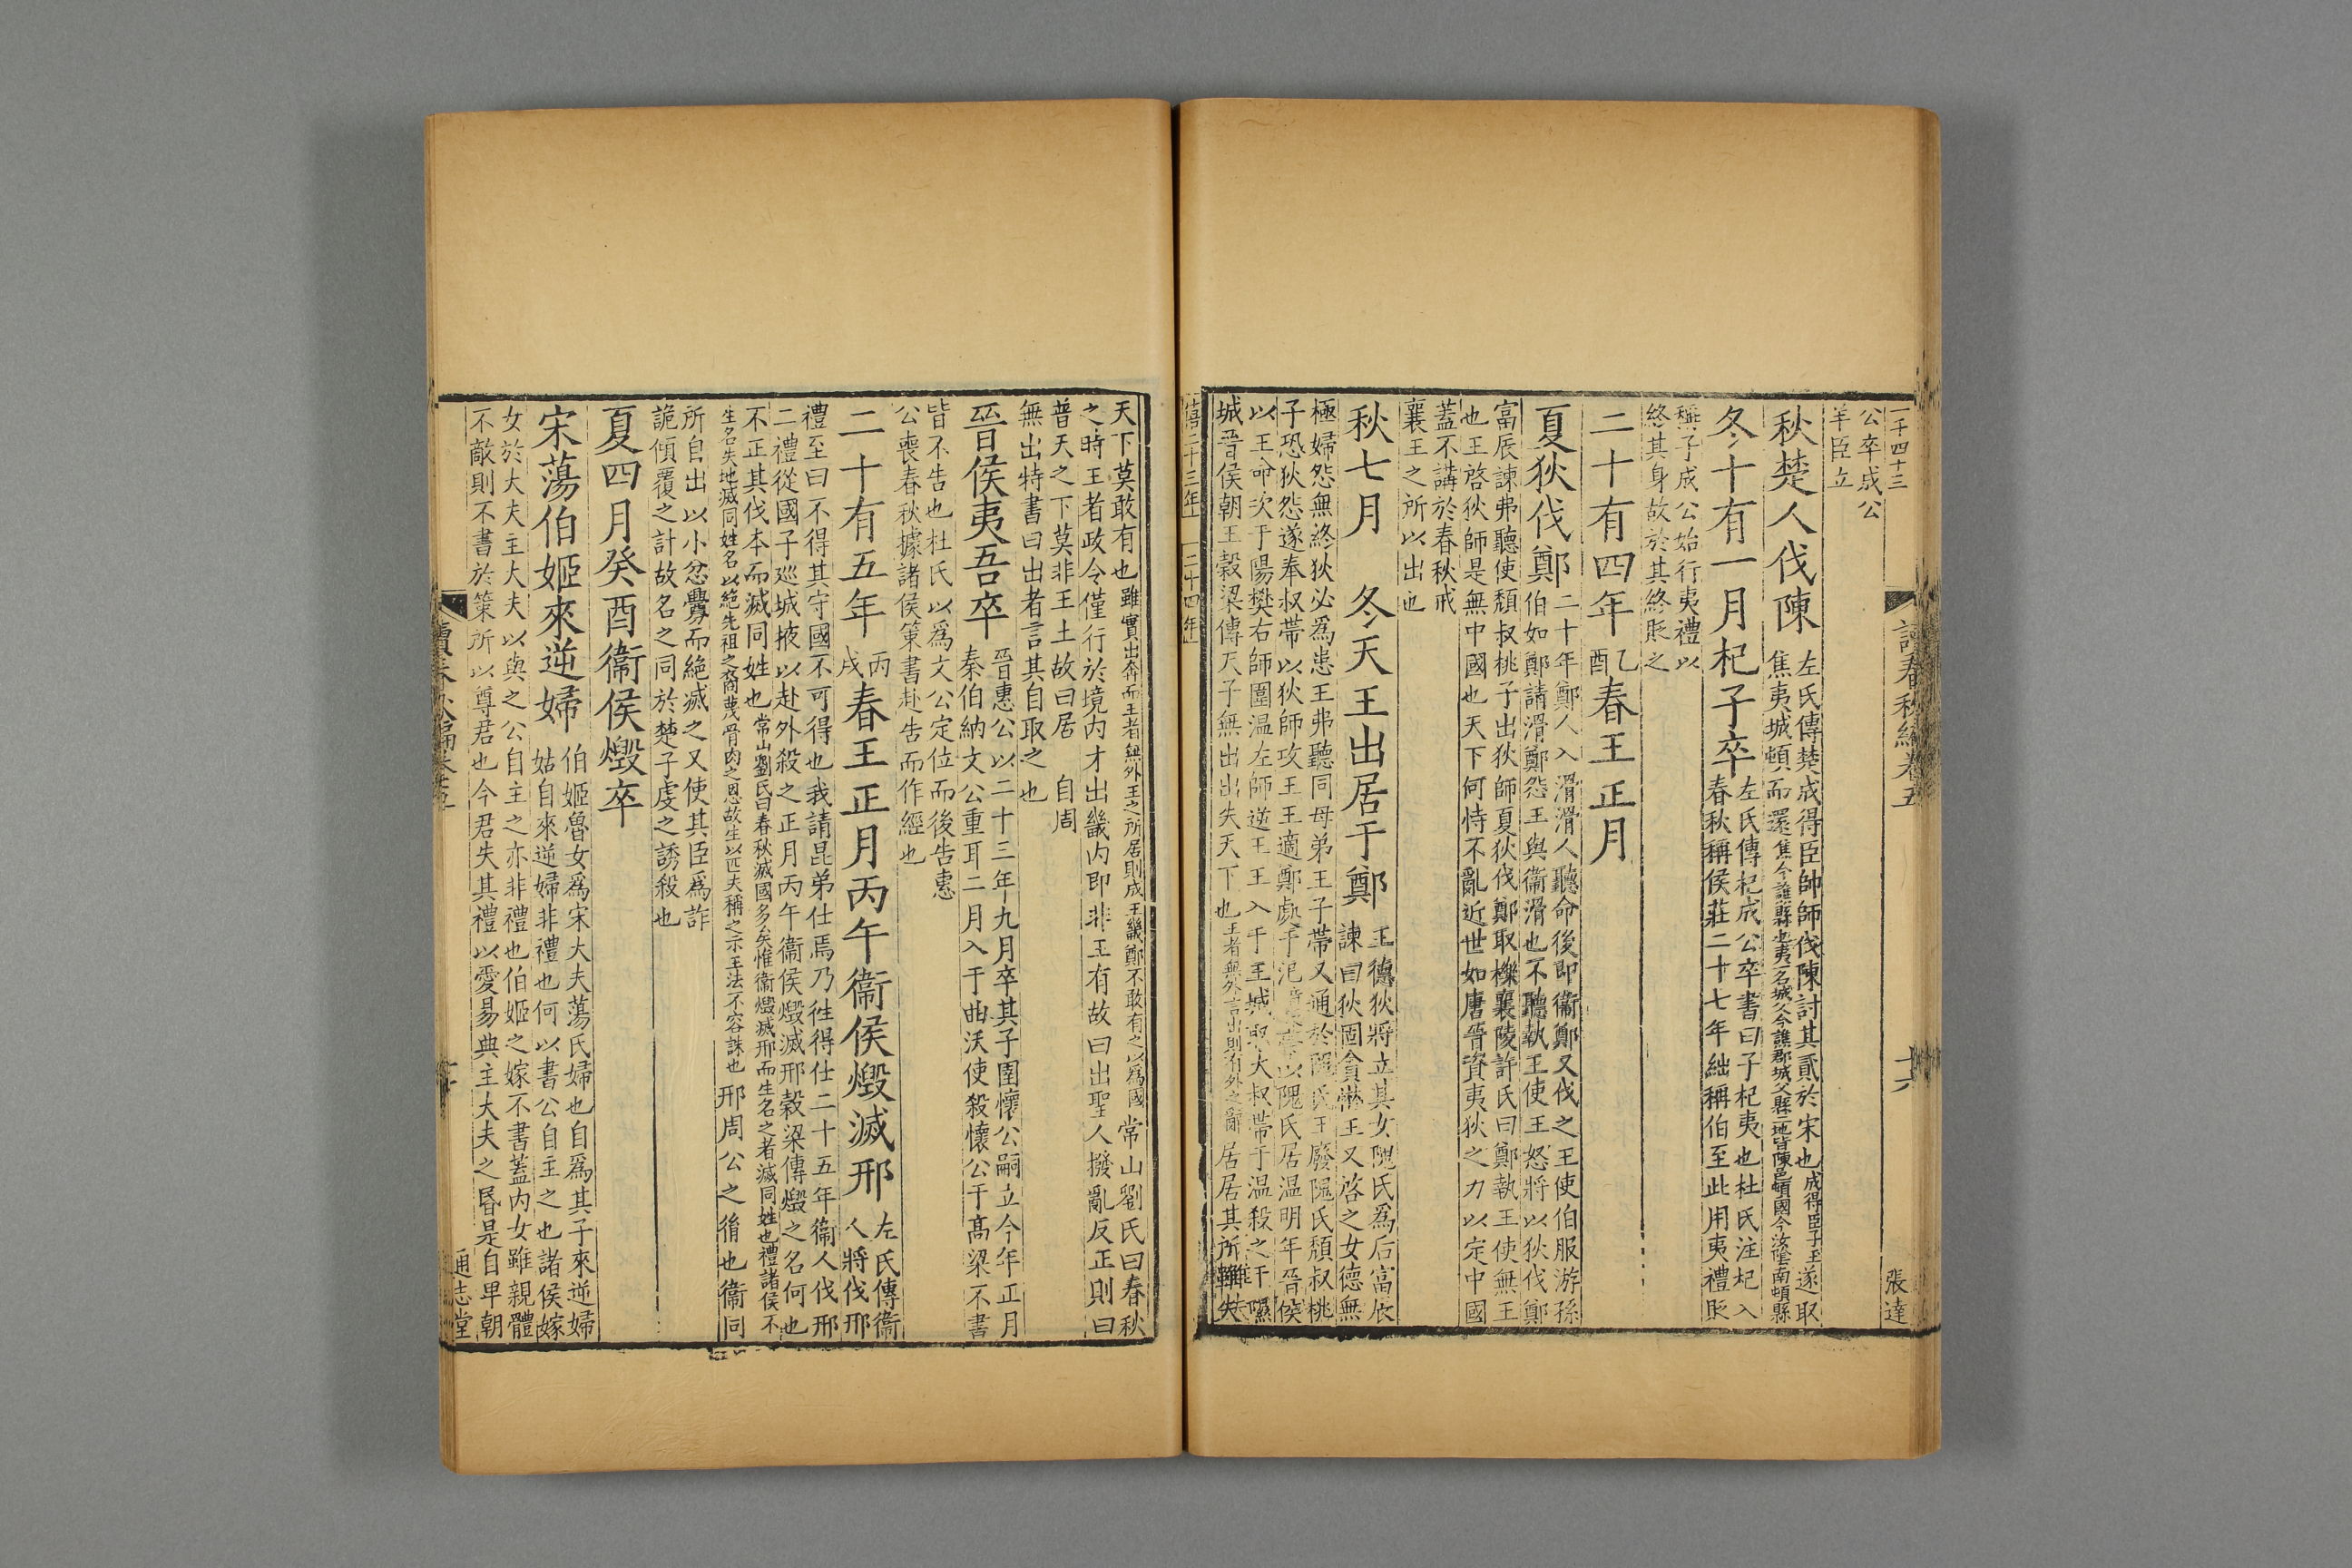 一千四十三
讀春秋編卷五
十六
張達
公卒成公
羊臣立
秋楚人伐陳
左氏傳楚成得臣帥師伐陳討其貳於宋也成得臣子玉遂取
焦夷城頓而還焦今譙縣也夷一名城父今譙郡城父縣二地皆陳邑頓國今汝陰南頓縣
冬十有一月杞子卒
左氏傳杞成公卒書曰子杞夷也杜氏注杞入
春秋稱侯莊二十七年絀稱伯至此用夷禮貶
稱子成公始行夷禮以
終其身故於其終貶之
二十有四年
乙
酉
春王正月
夏狄伐鄭
二十年鄭人入滑滑人聽命後即衞鄭又伐之王使伯服游孫
伯如鄭請滑鄭怨王與衞滑也不聽執王使王怒將以狄伐鄭
富辰諫弗聽使頹叔桃子出狄師夏狄伐鄭取櫟襄陵許氏曰鄭執王使無王
也王啓狄師是無中國也天下何恃不亂近世如唐晉資夷狄之力以定中國
蓋不講於春秋戒
襄王之所以出也
秋七月 冬天王出居于鄭
王德狄將立其女隗氏為后富辰
諫曰狄固貪惏王又啓之女德無
極婦怨無終狄必為患王弗聽同母弟王子帶又通於隗氏王廢隗氏頹叔桃
子恐狄怨遂奉叔帶以狄師攻王王適鄭處于氾以隗氏居溫明年晉侯
以王命次于陽樊右師圍溫左師逆王王入于王城取大叔帶于溫殺之于隰
城晉侯朝王穀梁傳天子無出出失天下也王者無外言出則有外之辭居居其所雖失
僖二十三年 二十四年
天下莫敢有也雖實出奔而王者無外王之所居則成王畿鄭不敢有之以為國常山劉氏曰春秋
之時王者政令僅行於境內才出畿內即非王有故曰出聖人撥亂反正則曰
普天之下莫非王土故曰居 自周
無出特書曰出者言其自取之也
晉侯夷吾卒
晉惠公以二十三年九月卒其子圉懷公嗣立今年正月
秦伯納文公重耳二月入于曲沃使殺懷公于高梁不書
皆不告也杜氏以為文公定位而後告惠
公喪春秋據諸侯策書赴告而作經也
二十有五年
丙
戌
春王正月丙午衞侯燬滅邢
左氏傳衞
人將伐邢
禮至曰不得其守國不可得也我請昆弟仕焉乃往得仕二十五年衞人伐邢
二禮從國子巡城掖以赴外殺之正月丙午衞侯燬滅邢穀梁傳燬之名何也
不正其伐本而滅同姓也常山劉氏曰春秋滅國多矣惟衞燬滅邢而生名之者滅同姓也禮諸侯不
生名失地滅同姓名以絶先祖之裔蔑骨肉之恩故生以匹夫稱之示王法不容誅也邢周公之後也衞同
所自出以小忿釁而絶滅之又使其臣為詐
詭傾覆之計故名之同於楚子虔之誘殺也
夏四月癸酉衞侯燬卒
宋蕩伯姬來逆婦
伯姬魯女為宋大夫蕩氏婦也自為其子來逆婦
姑自來逆婦非禮也何以書公自主之也諸侯嫁
女於大夫主大夫以與之公自主之亦非禮也伯姬之嫁不書蓋內女雖親體
不敵則不書於策所以尊君也今君失其禮以愛易典主大夫之昏是自卑朝
通志堂